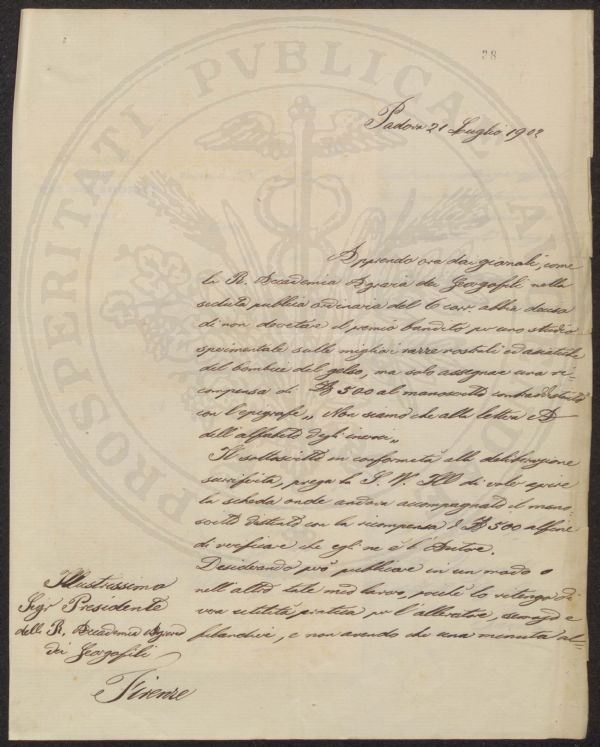 38
Padova 21 Luglio 1902
Apprendo ora dai giornali, come
la R. Accademia Agraria dei Georgofili nella
seduta pubblica ordinaria del 6 corr. abbia deciso
di non decretare il premio bandito per uno studio
sperimentale sulle migliori razze nostrali ed asiatiche
del bombice del gelso, ma solo assegnare una ri-
compensa di £ 500 al manoscritto contraddistinto
con l'epigrafe „ Non siamo che alla lettera
dell'alfabeto degli „
Il sottoscritto in conformità alla deliberazione
surriferita, prega la S. V. Ill di voler aprire
la scheda onde andava accompagnato il mano
scritto destinato con la ricompensa di £ 500 alfine
di verificare che egli ne è l'Autore.
Desiderando però pubblicare in un modo o
nell'altro tale mio lavoro, poichè lo ritengo di
vera utilità pratica per l'allevatore, semajo e
filandiere, e non avendo che una minuta al-
Illustrissimo
Sigr Presidente
della R. Accademia Agraria
dei Georgofili
Firenze
PROSPERITATI PVBLICAE